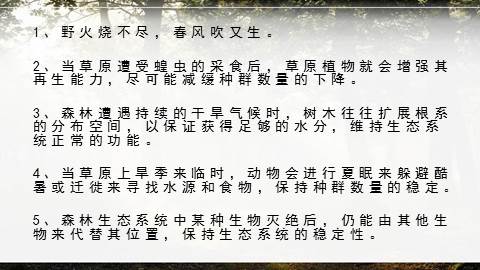 1、野火烧不尽，春风吹又生。
2、当草原遭受蝗虫的采食后，草原植物就会增强其
再生能力，尽可能减缓种群数量的下降。
3、森林遭遇持续的干旱气候时，树木往往扩展根系
的分布空间，以保证获得足够的水分，维持生态系
统正常的功能。
4、当草原上旱季来临时，动物会进行夏眠来躲避酷
暑或迁徙来寻找水源和食物，保持种群数量的稳定。
5、森林生态系统中某种生物灭绝后，仍能由其他生
物来代替其位置，保持生态系统的稳定性。